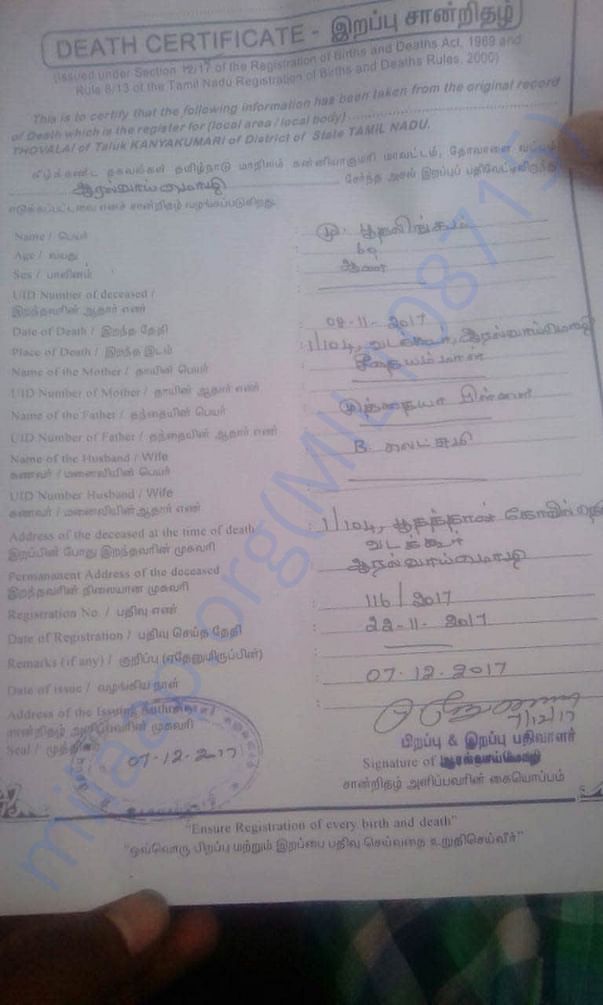 DEATH CERTIFICATE - இறப்பு சான்றிதழ்
(Issued under Section 12/17 of the Registration of Births and Deaths Act, 1969 and
Rule 8/13 of the Tamil Nadu Registration of Births and Deaths Rules, 2000)
This is to certify that the following information has been taken from the original record
of Death which is the register for (local area / local body)
THOVALAI of Taluk KANYAKUMARI of District of State TAMIL NADU.
கீழ்க்கண்ட தகவல்கள் தமிழ்நாடு மாநிலம் கன்னியாகுமரி மாவட்டம், தோவாளை வட்டம்
ஆரல்வாய்மொழி சேர்ந்த அசல் இறப்புப் பதிவேட்டிலிருந்து
எடுக்கப்பட்டவை எனச் சான்றிதழ் வழங்கப்படுகிறது.
Name / பெயர் : மு. பூதலிங்கம்
Age / வயது : 69
Sex / பாலினம் : ஆண்
UID Number of deceased /
இறந்தவரின் ஆதார் எண் :
Date of Death / இறந்த தேதி : 08-11-2017
Place of Death / இறந்த இடம் : 1/104, வடக்கூர், ஆரல்வாய்மொழி
Name of the Mother / தாயின் பெயர் : சீதையம்மாள்
UID Number of Mother / தாயின் ஆதார் எண் :
Name of the Father / தந்தையின் பெயர் : முத்தையா பிள்ளை
UID Number of Father / தந்தையின் ஆதார் எண் :
Name of the Husband / Wife : B. லெட்சுமி
கணவர் / மனைவியின் பெயர்
UID Number Husband / Wife
கணவர் / மனைவியின் ஆதார் எண் :
Address of the deceased at the time of death : 1/104, பூதத்தான் கோவில்
இறப்பின் போது இறந்தவரின் முகவரி வடக்கூர்
Permananent Address of the deceased ஆரல்வாய்மொழி
இறந்தவரின் நிலையான முகவரி :
Registration No. / பதிவு எண் : 116/2017
Date of Registration / பதிவு செய்த தேதி : 22-11-2017
Remarks (if any) / குறிப்பு (ஏதேனுமிருப்பின்) :
Date of issue / வழங்கிய நாள் : 07.12.2017
Address of the Issuing Authority /
சான்றிதழ் அளிப்பவரின் முகவரி 7/12/17
Seal / முத்திரை 07-12-2017
பிறப்பு & இறப்பு பதிவாளர்
Signature of ஆரல்வாய்மொழி
சான்றிதழ் அளிப்பவரின் கையொப்பம்
"Ensure Registration of every birth and death"
"ஒவ்வொரு பிறப்பு மற்றும் இறப்பை பதிவு செய்வதை உறுதிசெய்வீர்"